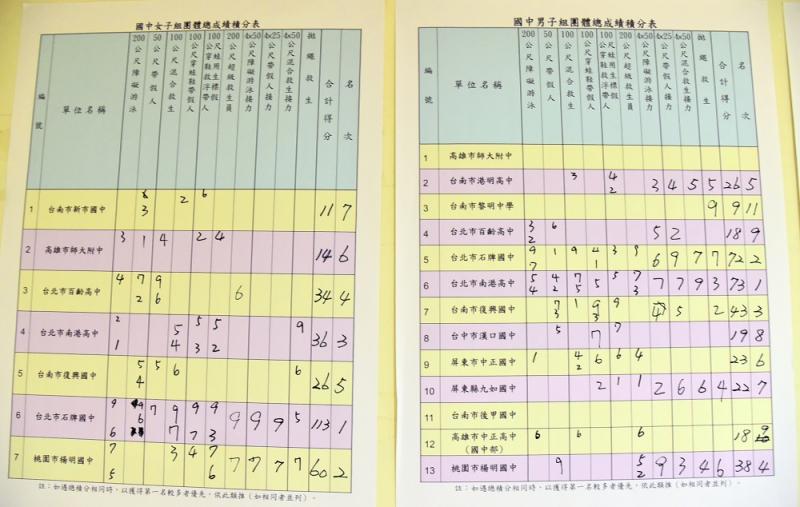 國中女子組團體總成績積分表
編號 單位名稱 200公尺障礙游泳 50公尺帶假人 100公尺混合救生 100公尺穿蛙鞋帶假人 200公尺超級救生員 4x50公尺障礙游泳接力 4x25公尺帶假人接力 4x50公尺混合救生接力 拋繩救生 合計得分 名次
1 台南市新市國中 3 2 6 11 7
2 高雄市師大附中 3 1 4 2 4 14 6
3 台北市百齡高中 4 7 2 9 6 6 34 4
4 台北市南港高中 2 1 5 4 5 3 5 2 9 36 3
5 台南市復興國中 5 4 5 6 6 26 5
6 台北市石牌國中 9 6 7 9 7 9 7 9 3 9 9 9 5 113 1
7 桃園市楊明國中 7 5 3 4 7 6 7 7 7 7 60 2
註：如遇總積分相同時，以獲得第一名較多者優先，依此類推（如相同者並列）。
國中男子組團體總成績積分表
編號 單位名稱 200公尺障礙游泳 50公尺帶假人 100公尺混合救生 100公尺穿蛙鞋帶假人 200公尺超級救生員 4x50公尺障礙游泳接力 4x25公尺帶假人接力 4x50公尺混合救生接力 拋繩救生 合計得分 名次
1 高雄市師大附中
2 台南市港明高中 3 4 2 3 4 5 5 26 5
3 台南市黎明中學 9 9 11
4 台北市百齡高中 3 2 6 5 2 18 9
5 台北市石牌國中 9 7 1 9 4 1 3 9 6 9 7 7 72 2
6 台北市南港高中 5 4 4 2 7 5 5 5 7 3 7 7 9 3 73 1
7 台南市復興國中 7 3 1 9 3 9 4 5 2 43 3
8 台中市漢口國中 5 7 7 19 8
9 屏東市中正國中 1 4 2 6 6 4 23 6
10 屏東縣九如國中 2 1 1 2 6 6 4 22 7
11 台南市後甲國中
12 高雄市中正高中（國中部） 6 6 6 18 9
13 桃園市楊明國中 9 5 2 9 3 4 6 38 4
註：如遇總積分相同時，以獲得第一名較多者優先，依此類推（如相同者並列）。